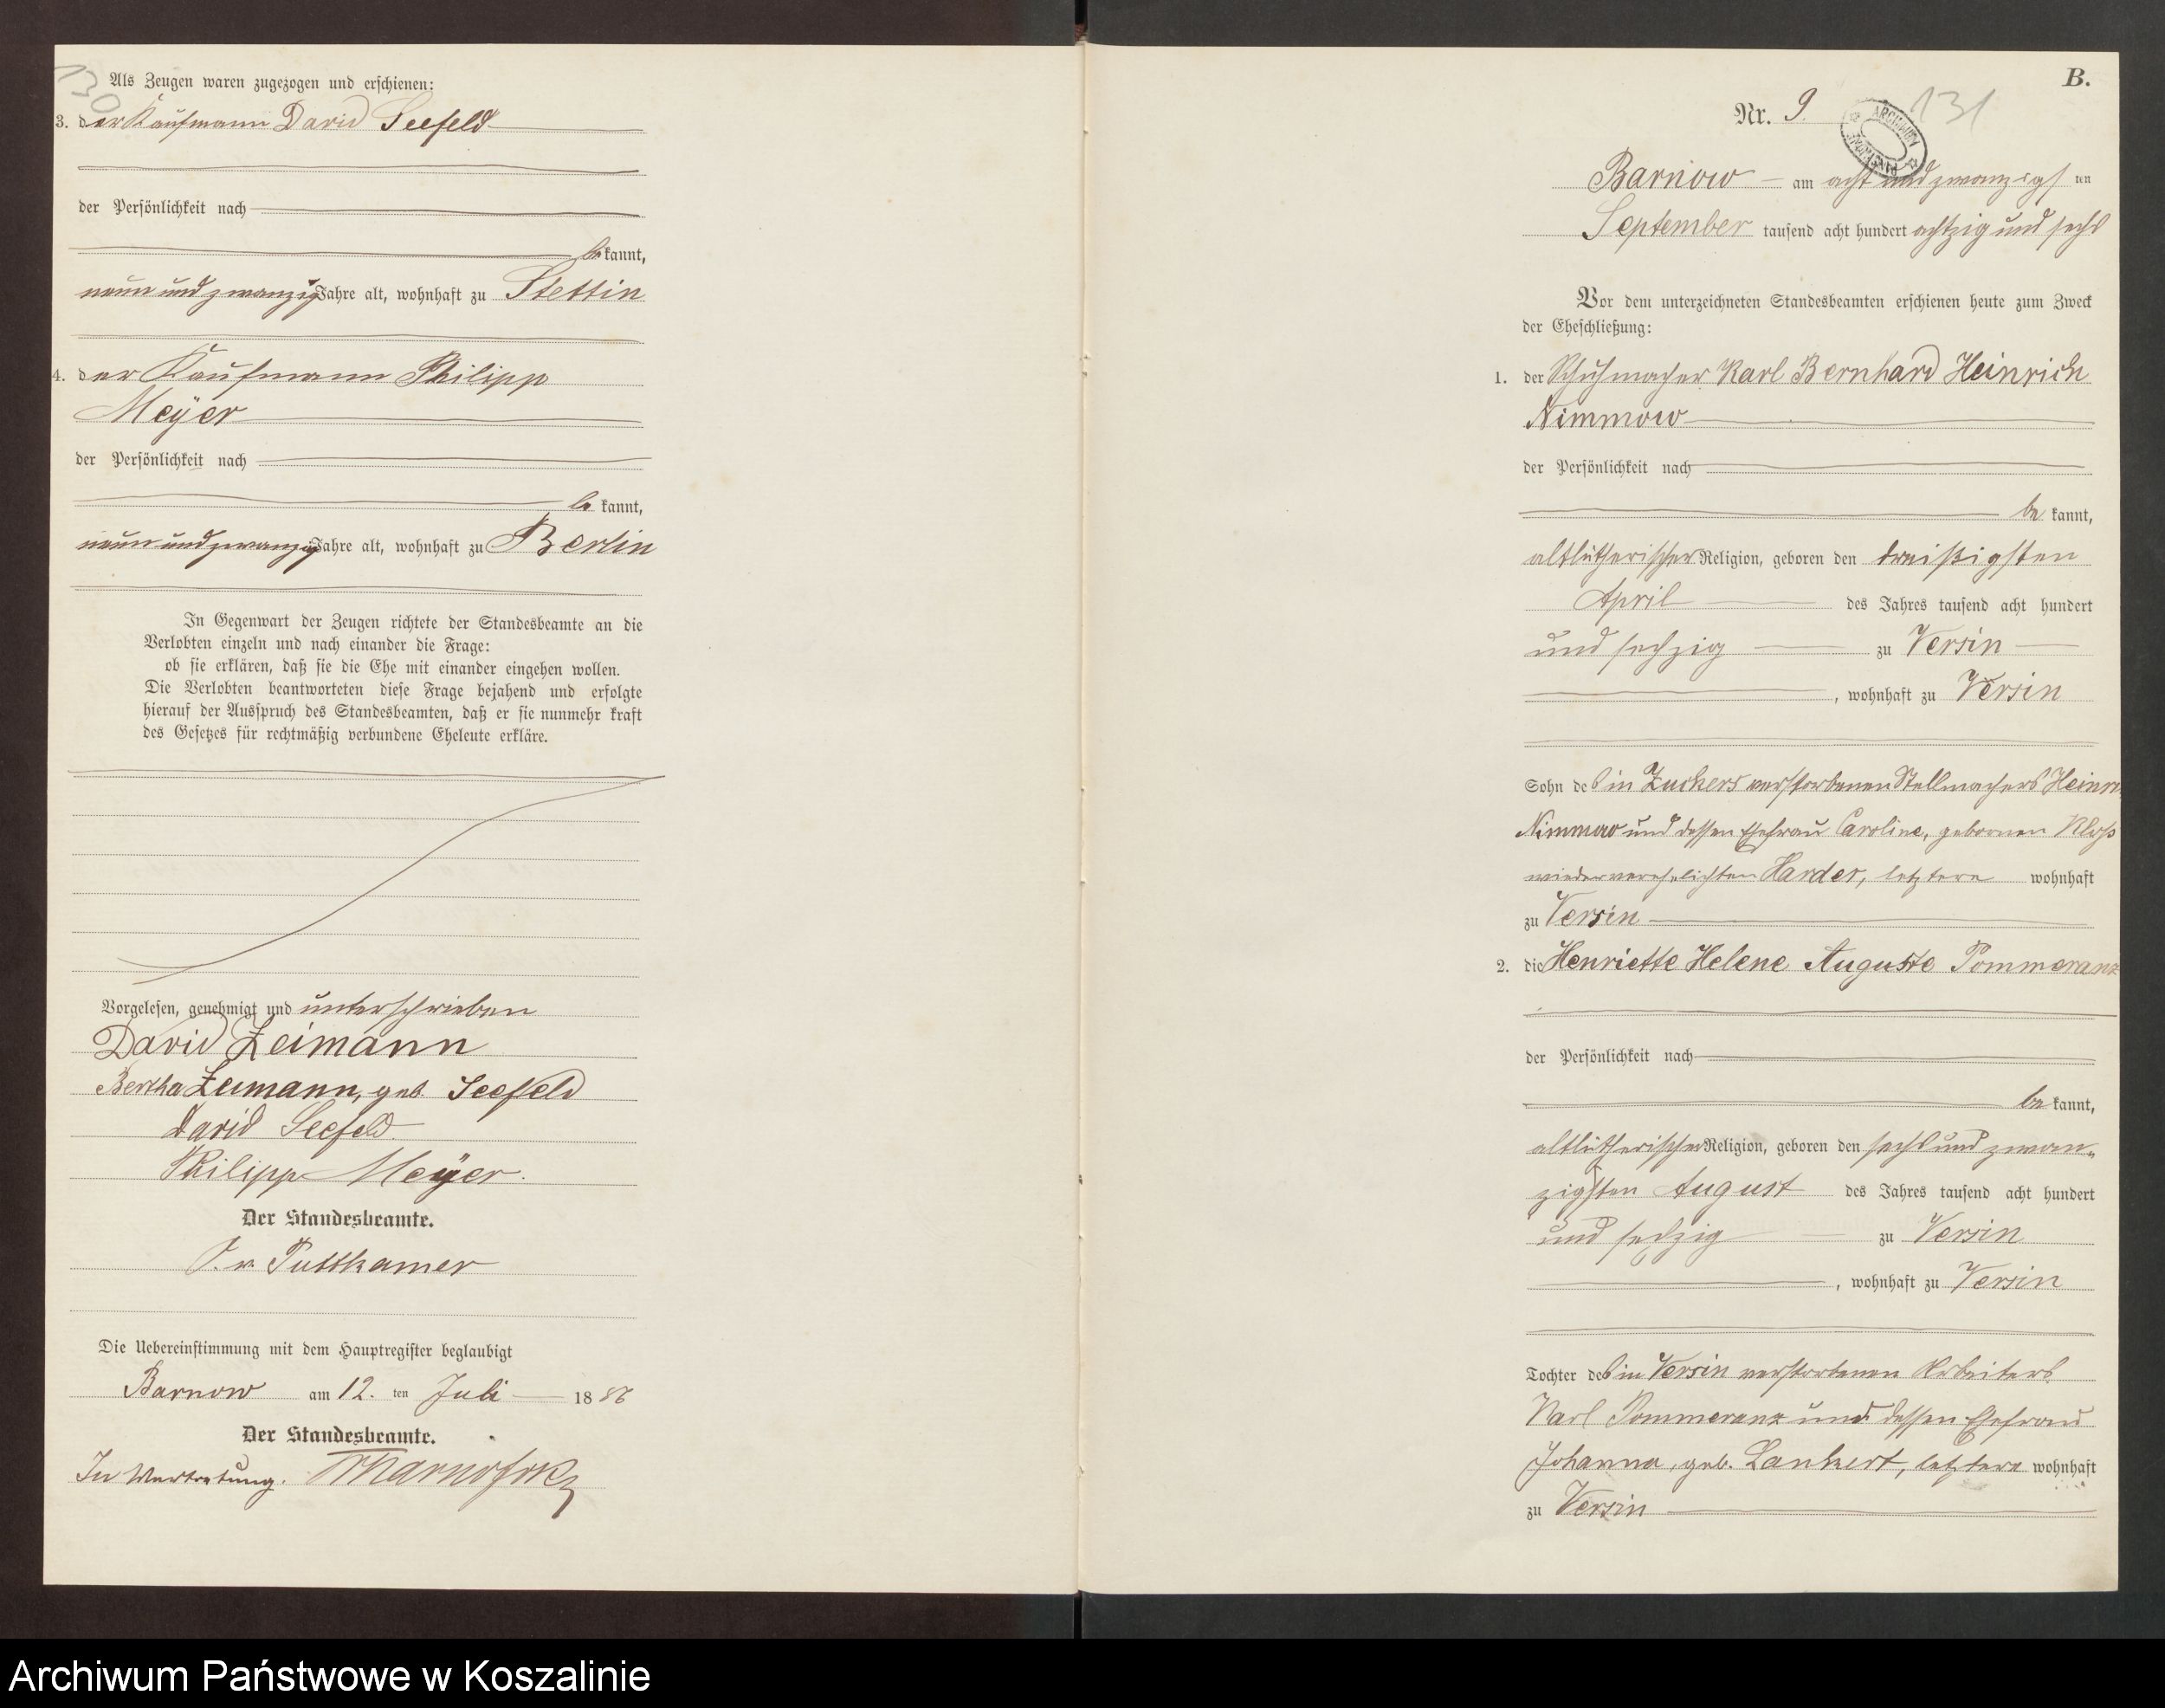 130
Als Zeugen waren zugezogen und erschienen:
3. der Kaufmann David Seefeld
der Persönlichkeit nach
bekannt,
neun und zwanzig Jahre alt, wohnhaft zu Stettin
4. der Kaufmann Philipp
Meyer
der Persönlichkeit nach
bekannt,
neun und zwanzig Jahre alt, wohnhaft zu Berlin
In Gegenwart der Zeugen richtete der Standesbeamte an die
Verlobten einzeln und nach einander die Frage:
ob sie erklären, daß sie die Ehe mit einander eingehen wollen.
Die Verlobten beantworteten diese Frage bejahend und erfolgte
hierauf der Ausspruch des Standesbeamten, daß er sie nunmehr kraft
des Gesetzes für rechtmäßig verbundene Eheleute erkläre.
Vorgelesen, genehmigt und unterschrieben
David Leimann
Bertha Leimann, geb. Seefeld
David Seefeld.
Philipp Meyer.
Der Standesbeamte.
v. Puttkamer
Die Uebereinstimmung mit dem Hauptregister beglaubigt
Barnow am 12. ten Juli 1886
Der Standesbeamte.
In Vertretung.
B.
Nr. 9.
131
Barnow am acht und zwanzigsten
September tausend acht hundert achtzig und sechs
Vor dem unterzeichneten Standesbeamten erschienen heute zum Zweck
der Eheschließung:
1. der Schuhmacher Karl Bernhard Heinrich
Nimmow
der Persönlichkeit nach
bekannt,
altlutherischer Religion, geboren den dreißigsten
April des Jahres tausend acht hundert
und sechzig zu Versin
, wohnhaft zu Versin
Sohn des in Zuckers verstorbenen Stellmachers Heinr.
Nimmow und dessen Ehefrau Caroline, gebornen Kloß
wiederverehelichten Harder, letztere wohnhaft
zu Versin
2. die Henriette Helene Auguste Pommeranz
der Persönlichkeit nach
bekannt,
altlutherischer Religion, geboren den sechs und zwan-
zigsten August des Jahres tausend acht hundert
und sechzig zu Versin
, wohnhaft zu Versin
Tochter des in Versin verstorbenen Arbeiters
Karl Pommeranz und dessen Ehefrau
Johanna, geb. Lankert, letztere wohnhaft
zu Versin
Archiwum Państwowe w Koszalinie